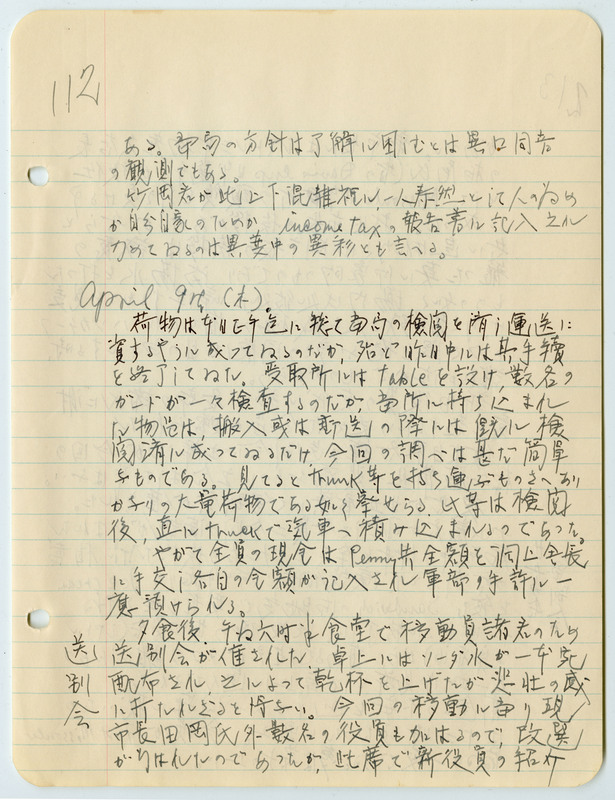 112
ある。当局の方針は了解に困しむとは異口同音
の観測でもある。
竹岡君が此上下混雑裡に一人泰然として人の為め
か自分自家のためか income tax の報告書に記入これ
力めてゐるのは異葉中の異彩とも言へる。
April 9th (木)。
荷物は本日正午迄に総て当局の検閲を済し運送に
資するやうに成ってゐるのだが、殆ど昨日中には其手續
を終了してゐた。受取所には table を設け、数名の
ガードが一々検査するのだが、当所に持ち込まれ
た物品は、搬入或は郵送の際には既に検
閲済に成ってゐるだけ今回の調べは甚だ簡単
なものである。見てると trunk 等を持ち運ぶものさへあり
かなりの大量荷物である如く挙せらる。此等は検閲
後、直に truck で汽車へ積み込まれるのであった。
やがて全員の現金は Penny 共全額を 会長
に手交し各自の金額が記入され軍部の手許に一
應預けられる。
夕食後、午后六時半食堂で移動員諸君のため
送別会
送別会が催された。卓上にはソーダ水が一本宛
配布され、之によって乾杯を上げたが悲壮の感
に打たれざるを得ない。今回の移動に当り現
市長田岡氏外数名の役員も加はるので、改選
が行はれたのであったが、此席で新役員の紹介